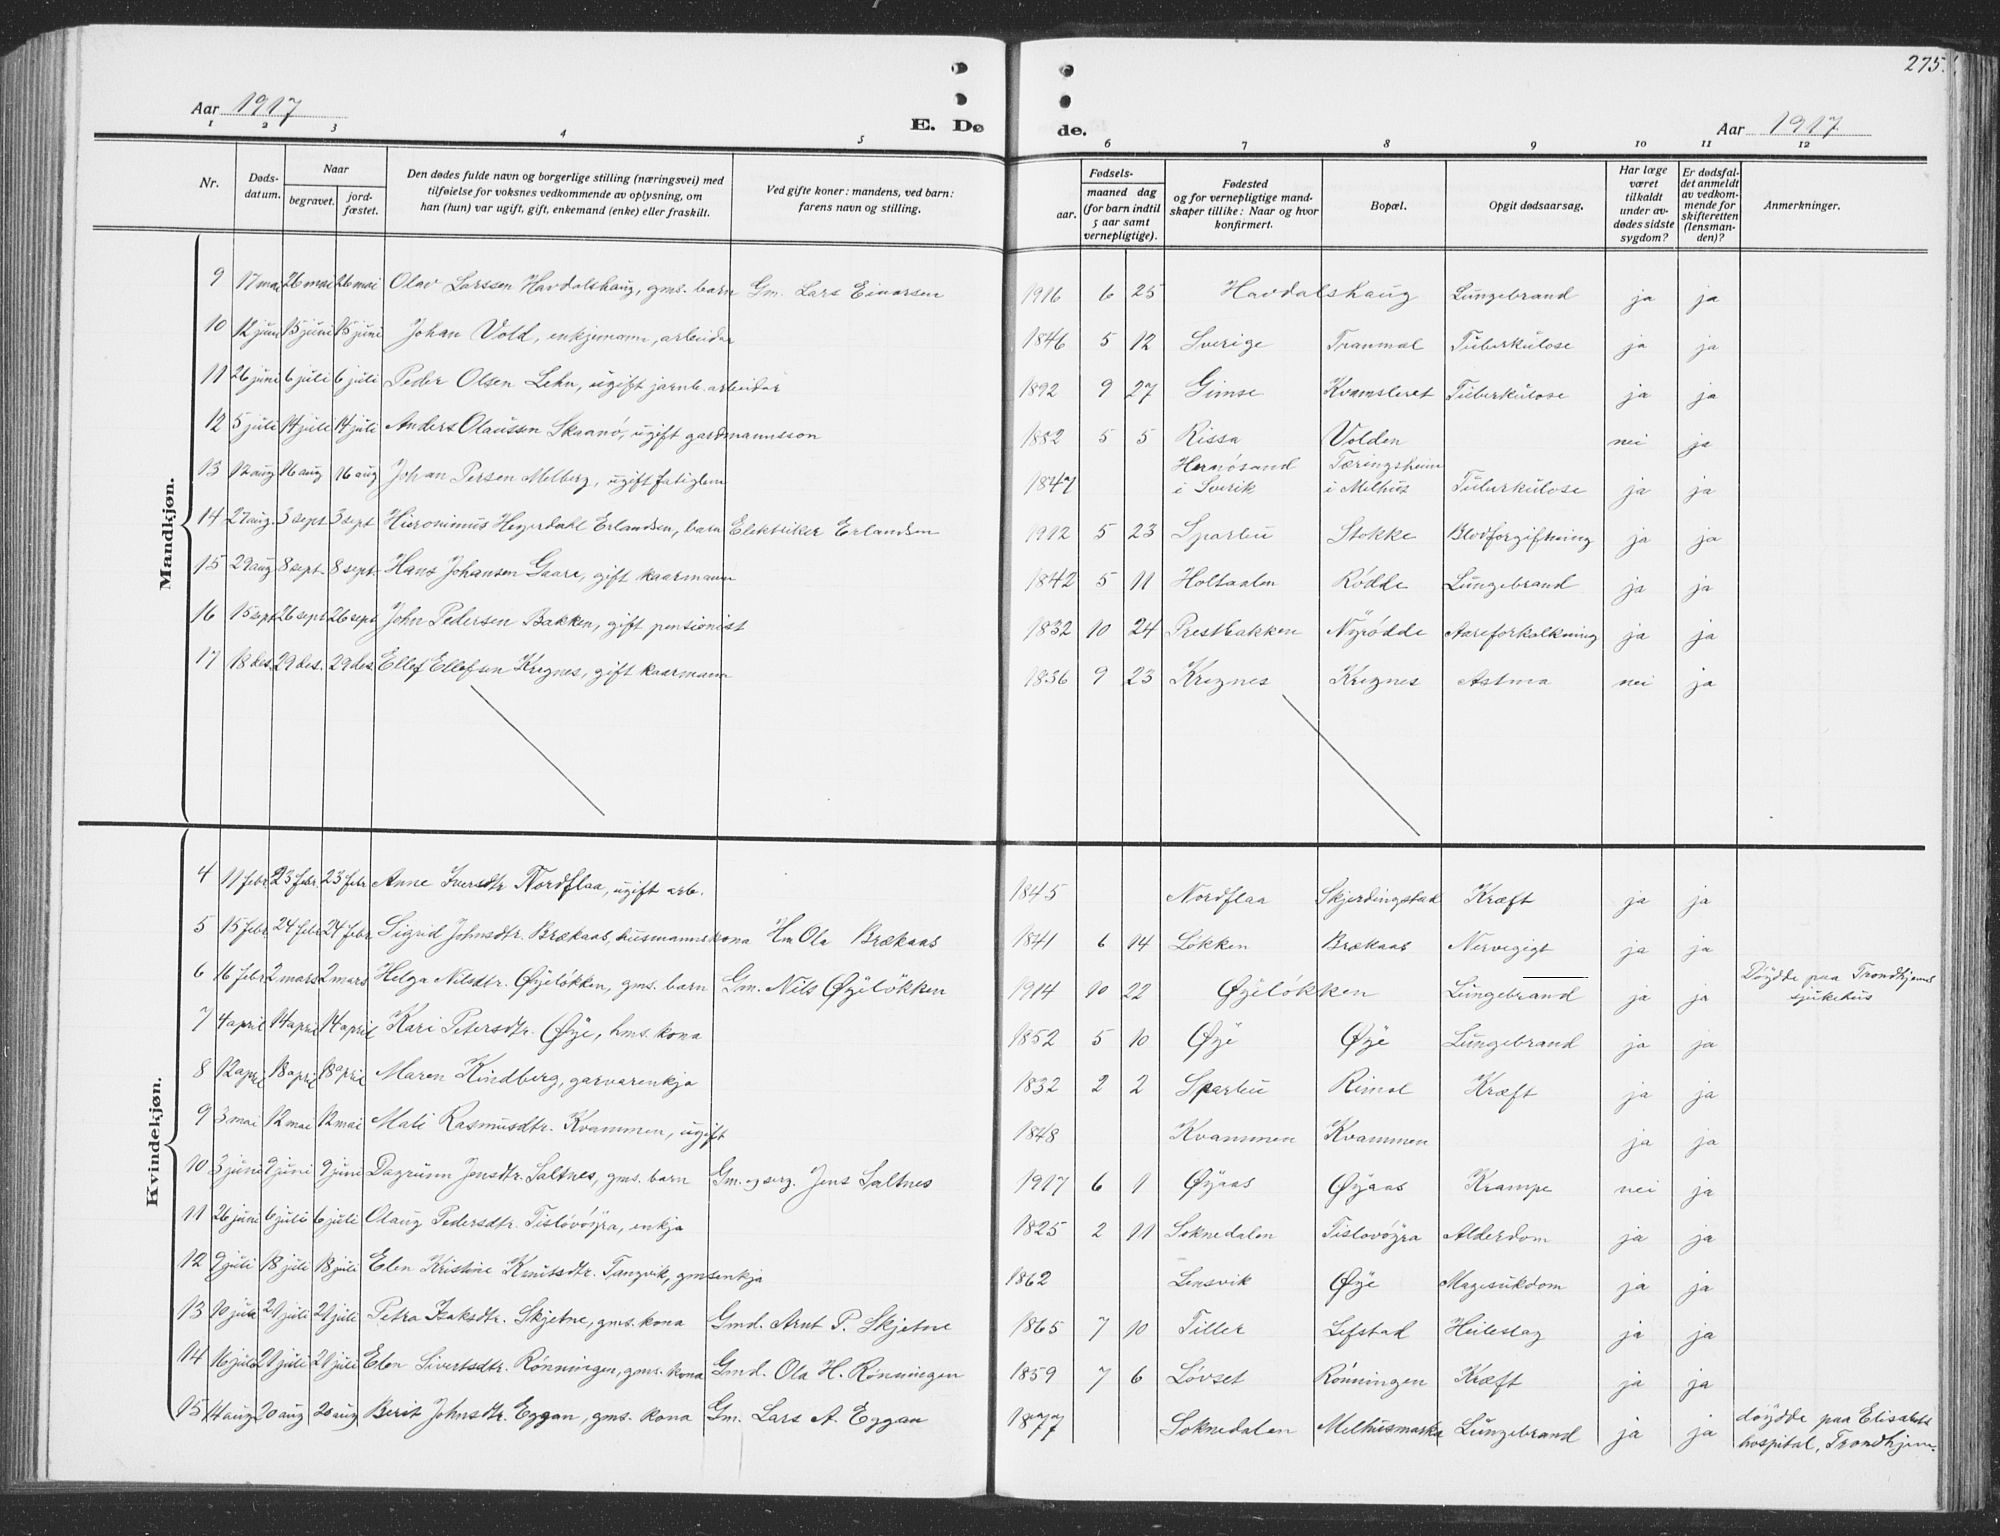 275.
Aar 1917
E. Dø de.
Aar 1917
1 2 3 4 5 6 7 8 9 10 11 12
Nr.
Døds-
datum.
Naar
begravet.
jord-
fæstet.
Den dødes fulde navn og borgerlige stilling (næringsvei) med
tilføielse for voksnes vedkommende av oplysning, om
han (hun) var ugift, gift, enkemand (enke) eller fraskilt.
Ved gifte koner: mandens, ved barn:
farens navn og stilling.
Fødsels-
aar.
maaned dag
(for barn indtil
5 aar samt
vernepligtige).
Fødested
og for vernepligtige mand-
skaper tillike: Naar og hvor
konfirmert.
Bopæl.
Opgit dødsaarsag.
Har læge
været
tilkaldt
under av-
dødes sidste
sygdom?
Er dødsfal-
det anmeldt
av vedkom-
mende for
skifteretten
(lensman-
den)?
Anmerkninger.
Mandkjøn.
9 17 mai 26 mai 26 mai Olav Larssen Havdalshaug, gms. barn Gm. Lars Einarsen 1916 6 25 Havdalshaug Lungebrand ja ja
10 12 juni 15 juni 15 juni Johan Vold, enkjemann, arbeidar 1846 5 12 Sverige Tranmæl Tuberkulose ja ja
11 26 juni 6 juli 6 juli Peder Olsen Lehn, ugift jarnb. arbeidar 1892 9 27 Gimse Kvamsleret Tuberkulose ja ja
12 5 juli 14 juli 14 juli Anders Olaussen Skaanö, ugift gardmannsson 1882 5 5 Rissa Volden nei ja
13 12 aug 16 aug 16 aug Johan Persen Melberg, ugift fatiglem 1847 Hernösand i Sverik Tæringsheim i Melhus Tuberkulose ja ja
14 27 aug. 3 sept 3 sept Hieronimus Hegerdahl Erlandsen, barn Elektriker Erlandsen 1912 5 23 Sparbu Stokke Blodforgiftning ja ja
15 29 aug 8 sept. 8 sept. Hans Johansen Gaare, gift kaarmann 1842 5 11 Holtaalen Rödde Lungebrand ja ja
16 15 sept 26 sept 26 sept John Pedersen Bakken, gift pensionist 1832 10 24 Prestbakken Nyrödde Aareforkalkning ja ja
17 18 des. 29 des. 29 des Ellef Ellefsen Kregnes, gift kaarmann 1836 9 23 Kregnes Kregnes Astma nei ja
Kvindekjøn.
4 11 febr 23 febr. 23 febr Anne Iversdtr Nordflaa, ugift arb. 1845 Nordflaa Skjerdingstad Kræft ja ja
5 15 febr 24 febr 24 febr Sigrid Johnsdtr. Brækaas, husmannskona Hm Ola Brækaas 1841 6 14 Lökken Brækaas Nervegigt ja ja
6 16 febr 2 mars 2 mars Helga Nilsdtr. Øyelökken, gms. barn Gm. Nils Øyelökken 1914 10 22 Øyelökken Lungebrand ja ja Döydde paa Trondhjems
sjukehus
7 4 april 14 april 14 april Kari Petersdtr. Øye, hms. kona 1852 5 10 Øye Øye Lungebrand ja ja
8 12 april 18 april 18 april Maren Kindberg, garvarenkja 1832 2 2 Sparbu Rimol Kræft ja ja
9 3 mai 12 mai 12 mai Mali Rasmusdtr. Kvammen, ugift 1848 Kvammen Kvammen ja ja
10 3 juni 9 juni 9 juni Dagrunn Jensdtr. Saltnes, gms. barn Gm. og serg. Jens Saltnes 1917 6 1 Øyaas Øyaas Krampe nei ja
11 26 juni 6 juli 6 juli Olaug Pedersdtr. Tislövöyra, enkja 1825 2 11 Soknedalen Tislovöyra Alderdom ja ja
12 9 juli 18 juli 18 juli Elen Kristine Knutsdtr. Tangvik, gmsenkja 1862 Lensvik Øye Magesukdom ja ja
13 10 juli 21 juli 21 juli Petra Isaksdtr. Skjetne, gms. kona Gmd. Arnt P. Skjetne 1865 7 10 Tiller Lefstad Heileslag ja ja
14 16 juli 21 juli 21 juli Elen Sivertsdtr. Rönningen, gms. kona Gmd. Ola H. Rönningen 1859 7 6 Lövset Rönningen Kræft ja ja
15 14 aug 20 aug 20 aug Berit Johnsdtr. Eggan, gms. kona Gm. Lars A. Eggan 1877 Soknedalen Melhusmarka Lungebrand ja ja döydde paa Elisabets
hospital, Trondhjem